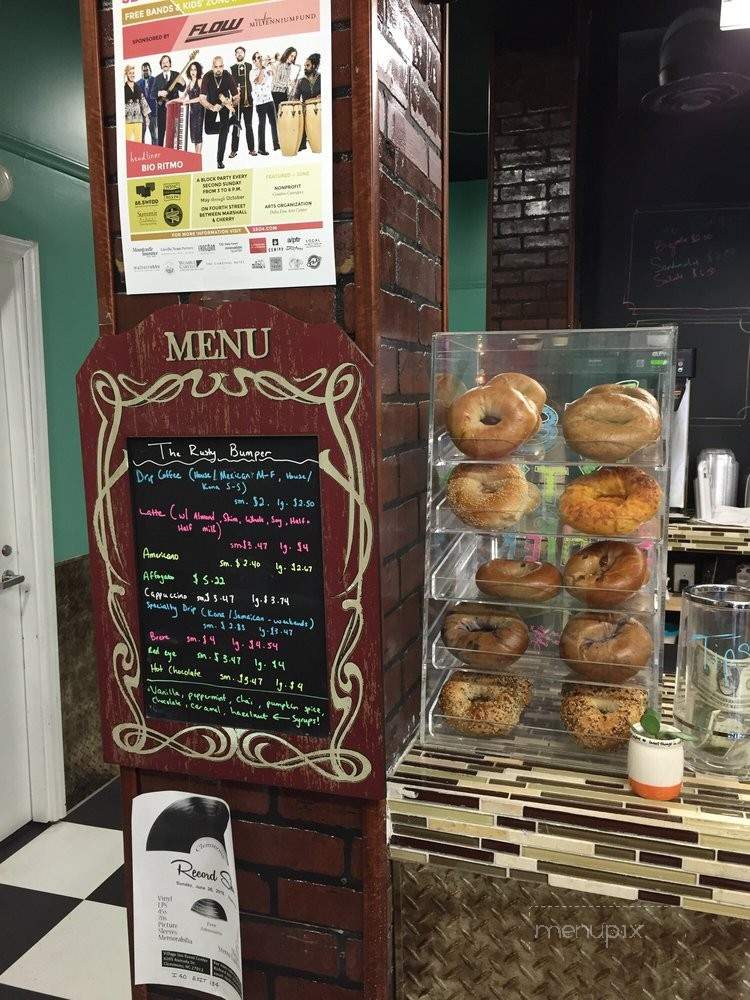 FREE BANDS & KIDS' ZONE
SPONSORED BY FLOW MILLENNIUMFUND
headliner
BIO RITMO
88.5WFDD
Summit
A BLOCK PARTY EVERY
SECOND SUNDAY
FROM 3 TO 6 P.M.
May through October
ON FOURTH STREET
BETWEEN MARSHALL
& CHERRY
FEATURED – JUNE
NONPROFIT
ARTS ORGANIZATION
FOR MORE INFORMATION VISIT
MENU
The Rusty Bumper
Drip Coffee (House/Mexican: M-F, House/
Kona S-S)
sm. $2. lg. $2.50
Latte (w/ Almond, Skim, Whole, Soy, Half n
Half milk)
sm $3.47 lg. $4
Americano
sm. $2.40 lg. $2.67
Affogato $5.22
Cappuccino sm $3.47 lg. $3.74
Specialty Drip (Kona/Jamaican - weekends)
sm. $2.85 lg. $3.47
Breve sm. $4 lg. $4.54
Red eye sm. $3.47 lg. $4
Hot Chocolate sm. $3.47 lg. $4
Vanilla, peppermint, chai, pumpkin spice,
chocolate, caramel, hazelnut ← Syrups!
Tips
Clemmons
Record
Sunday, June 26,
Vinyl
LPs
45s
78s
Picture
Sleeves
Memorabilia
Free
Admission
Village Inn Event Center
Clemmons, NC 27012
I 40 EXIT 184
menupix